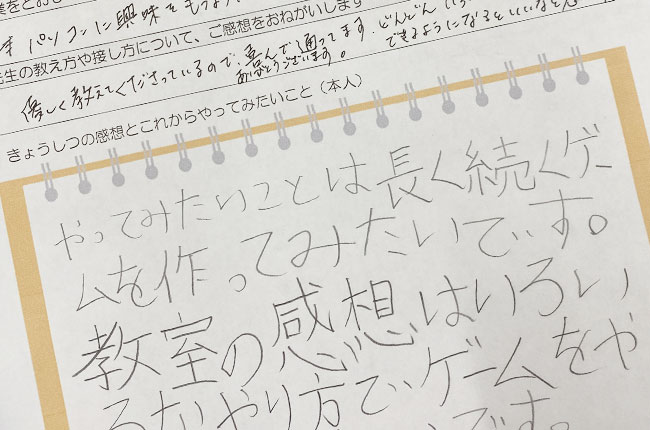 業をとおし
パソコンに興味をもつ
先生の教え方や接し方について、ご感想をおねがいします
優しく教えてくださっているので、喜んで通ってます。どんどん
できるようになるといいなと
ありがとうございます。
きょうしつの感想とこれからやってみたいこと（本人）
やってみたいことは長く続くゲー
ムを作ってみたいです。
教室の感想はいろい
ろなやり方でゲームをや
です。